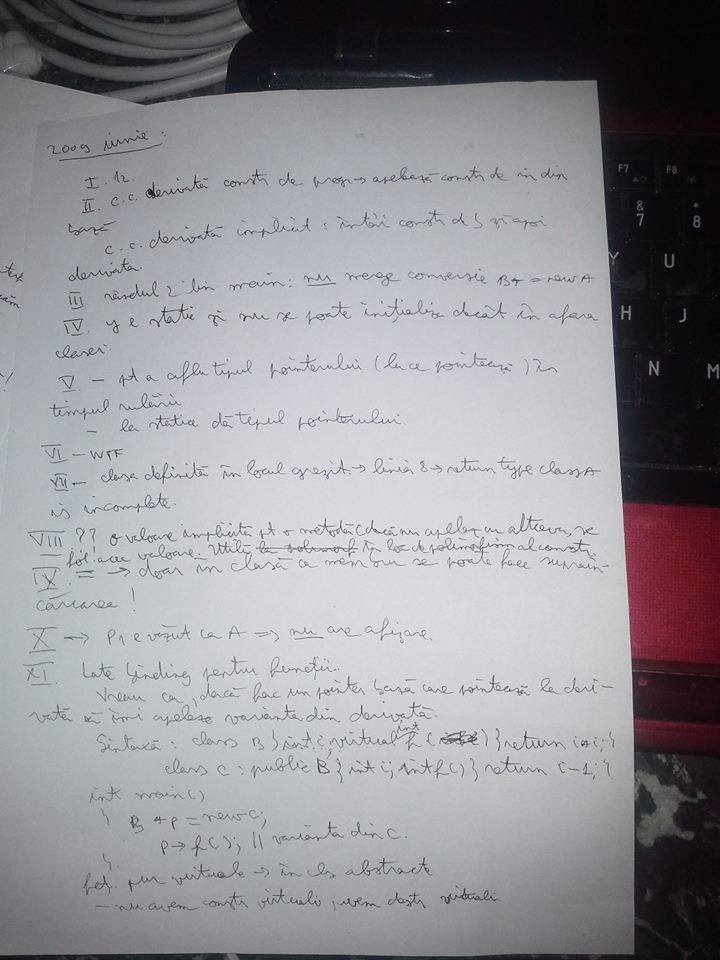 2009 iunie:
I. 12.
II. c.c. derivată constr de prog → apelează constr de in din
bază
c.c. derivată implicit: întâi constr de b și apoi
derivata.
III rândul 2 din main: nu merge conversie B* = new A
IV. y e static și nu se poate inițializa decât în afara
clasei.
V. – pt a afla tipul pointerului (la ce pointează) în
timpul rulării
– la statice dă tipul pointerului.
VI – WTF
VII – clasa definită în locul greșit → linia 8 → return type class A
is incomplete.
VIII ?? o valoare implicită pt o metodă (dacă nu apelez cu altceva, se
fol. acea valoare. Utilă în loc de polimorfism al constr.
IX. = → doar în clasă ca membru se poate face supraîn-
cărcarea!
X → P1 e văzut ca A => nu are afișare.
XI. Late binding pentru funcții.
Vreau ca, dacă fac un pointer bază care pointează la deri-
vată să îmi apeleze varianta din derivată.
Sintaxă: class B { int i; virtual int f( ) { return i+i; }
class C: public B { int i; int f() { return i-1; }
int main()
{ B *p = new C;
p→f(); // varianta din C.
}
fct. pur virtuale → în cls abstracte
– nu avem constr virtuali, avem destr virtuali
F7
F8
&
7
*
8
Y
U
H
J
N
M